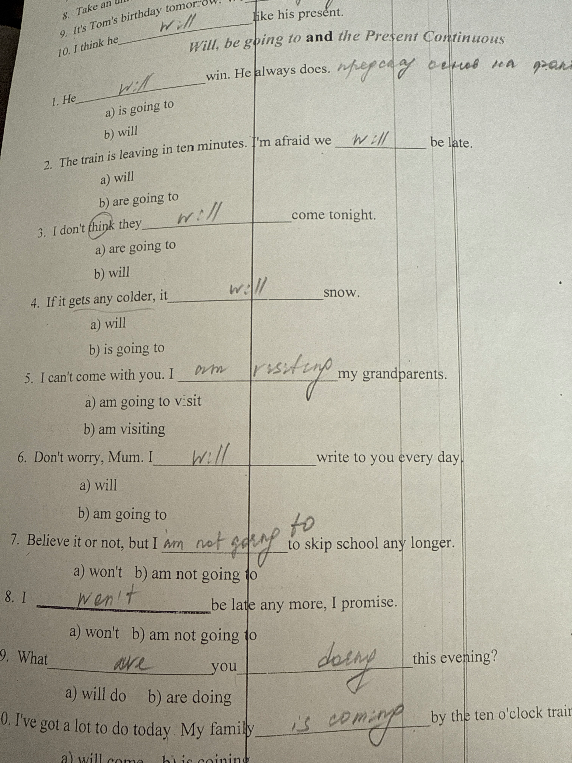 8. Take an
9. It's Tom's birthday tomorrow.
10. I think he will like his present.
Will, be going to and the Present Continuous
1. He will win. He always does. на
a) is going to
b) will
2. The train is leaving in ten minutes. I'm afraid we will be late.
a) will
b) are going to
3. I don't think they will come tonight.
a) are going to
b) will
4. If it gets any colder, it will snow.
a) will
b) is going to
5. I can't come with you. I am visiting my grandparents.
a) am going to visit
b) am visiting
6. Don't worry, Mum. I will write to you every day
a) will
b) am going to
7. Believe it or not, but I am not going to to skip school any longer.
a) won't b) am not going to
8. I won't be late any more, I promise.
a) won't b) am not going to
9. What are you doing this evening?
a) will do b) are doing
0. I've got a lot to do today My family is coming by the ten o'clock train
a) will come b) is coming